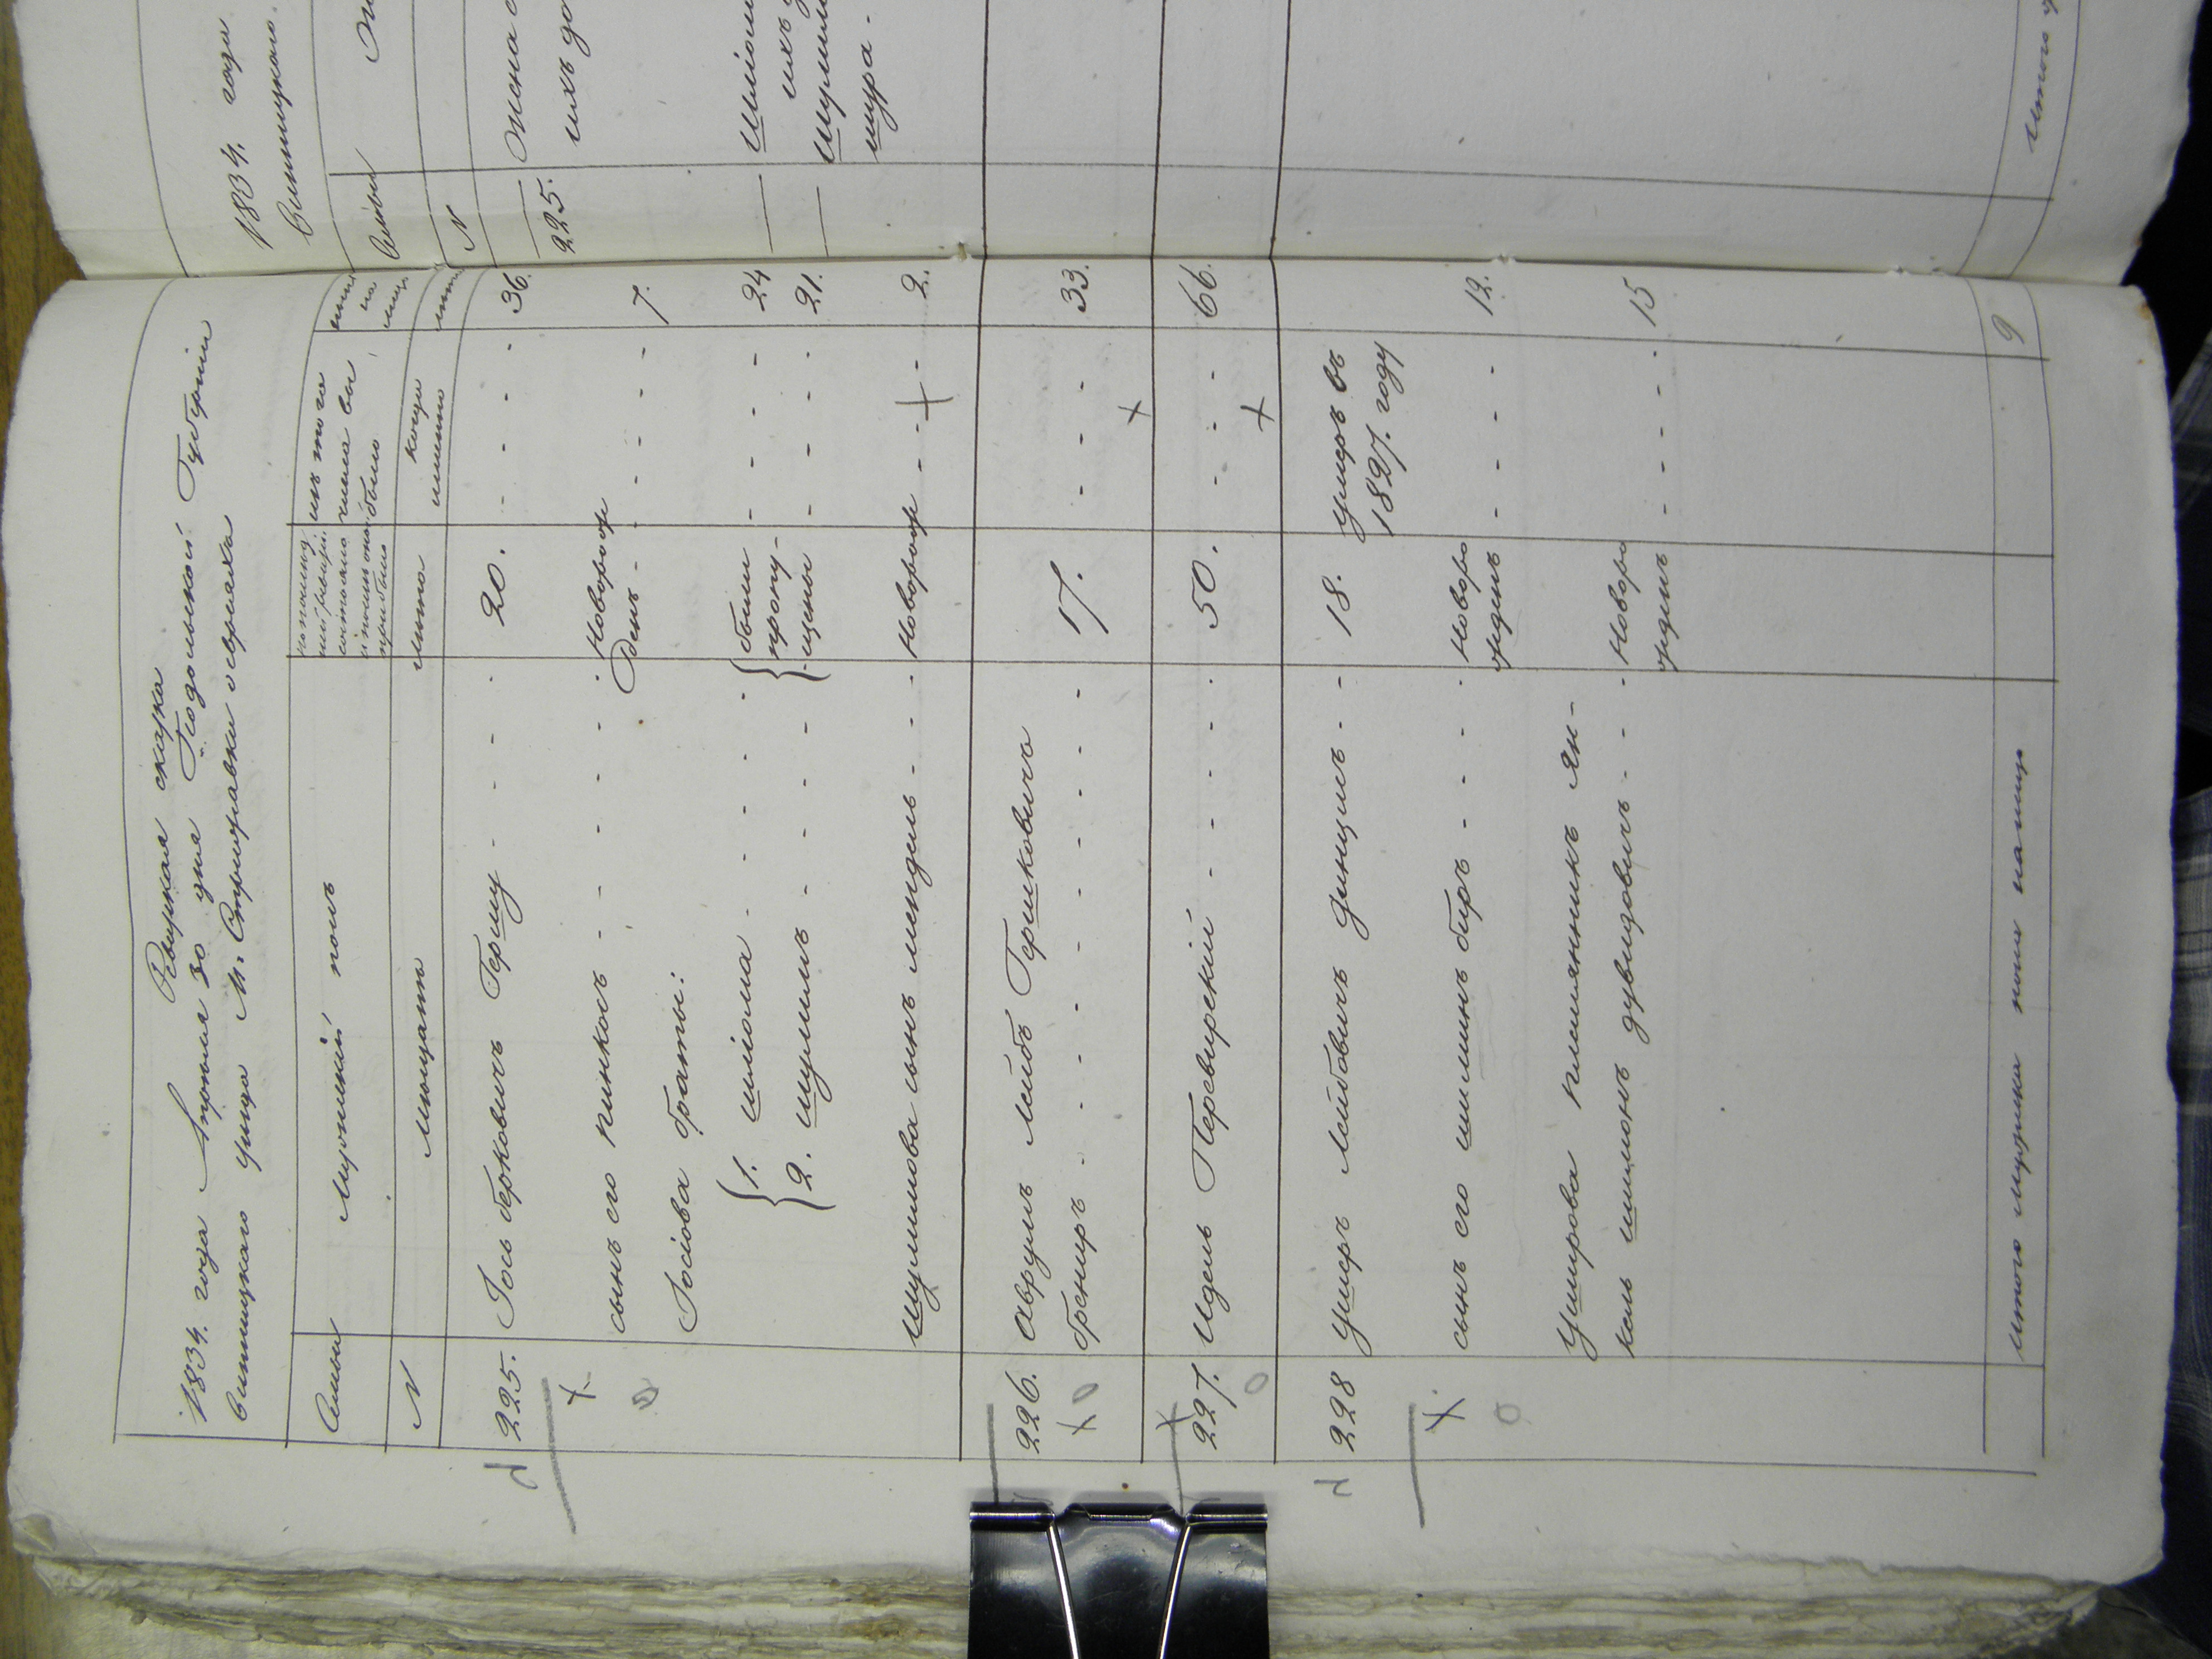 Ревизская сказка
1834. года Апреля 30 дня Подольской Губернии
Винницкаго уезда М. Стрижавки о евреяхъ
Семьи
Мужеский полъ
по последней ревизии состояло и после оной прибыло
изъ того числа выбыло
ныне на лицо
N
Мещанъ
лета
когда именно
лета
225. Іось берковичъ Гершу - - - 20. - - - - 36.
сынъ его пинкасъ - - - - - Новорож
денъ - - - - 7.
Іосіова браты:
1. шліома - - - - были - - - - 24
2. шулимъ - - - - - пропу-
щены - - - - 21.
Шулимова сынъ мендель - - - Новорож - - - 2.
226. Аврумъ лейбъ Гершковичъ
бренеръ - - - - - - - - - 17. - - - 33.
227. Идель Перевирскій - - - - - 50. - - - 66.
228 Ушеръ лейбовичъ диницъ - - 18. умеръ въ
1827. году
сынъ его шимшнъ биръ - - - - Новоро
жденъ - - - - 12.
Ушерова племянникъ Ян-
кель шимонъ дувидовичъ - - - Новоро
жденъ - - - - 15
итого мужеска пола налицо 9
1834. года
Винницкаго.
Семьи
N
225. Жена
ихъ до
Шліом
ихъ
Шулим
шура.
итого